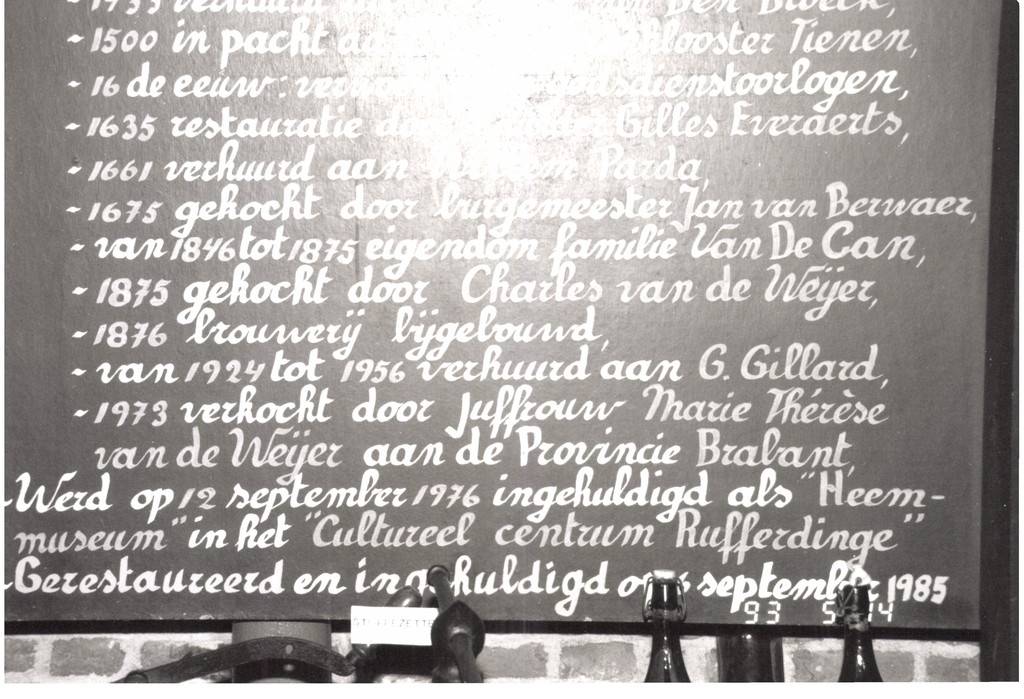 - 1500 in pacht klooster Tienen,
- 16 de eeuw: godsdienstoorlogen,
- 1635 restauratie door Gilles Everaerts,
- 1661 verhuurd aan Willem Parda,
- 1675 gekocht door burgemeester Jan van Berwaer,
- van 1846 tot 1875 eigendom familie Van De Can,
- 1875 gekocht door Charles van de Weijer,
- 1876 brouwerij bijgebouwd,
- van 1924 tot 1956 verhuurd aan G. Gillard,
- 1973 verkocht door Juffrouw Marie Thérèse
van de Weijer aan de Provincie Brabant,
- Werd op 12 september 1976 ingehuldigd als "Heem-
museum" in het "Cultureel centrum Rufferdinge"
- Gerestaureerd en ingehuldigd op september 1985
93 5 14